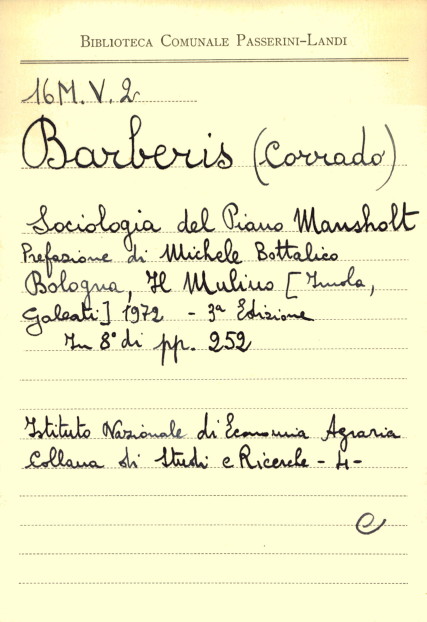 Biblioteca Comunale Passerini-Landi
16M.V.2
Barberis (Corrado)
Sociologia del Piano Mansholt
Prefazione di Michele Bottalico
Bologna, Il Mulino [Imola,
Galeati] 1972 - 3ª Edizione
In 8° di pp. 252
Istituto Nazionale di Economia Agraria
Collana di Studi e Ricerche - 4 -
C